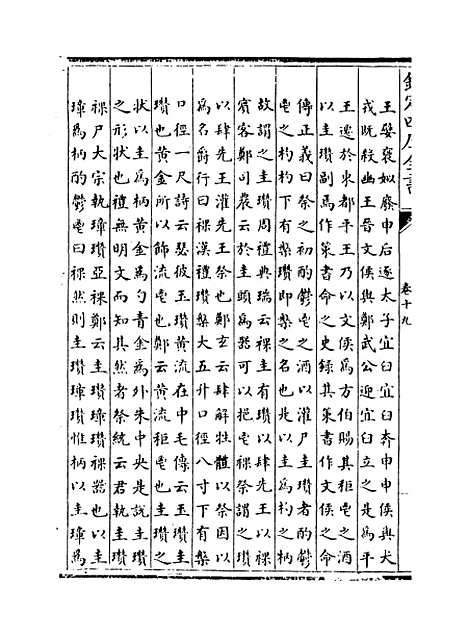 欽定四庫全書
卷十九
王嬖褒姒廢申后逐太子宜臼宜臼奔申申侯與犬
戎既殺幽王晉文侯與鄭武公迎宜臼立之是為平
王遷於東都平王乃以文侯為方伯賜其秬鬯之酒
以圭瓚副焉作策書命之史録其策書作文侯之命
傳正義曰祭之初酌鬱鬯之酒以灌尸圭瓚者酌鬱
鬯之杓杓下有槃瓚即槃之名也是以圭為杓之柄
故謂之圭瓚周禮典瑞云祼圭有瓚以肆先王以祼
賓客鄭司農云於圭頭為器可以挹鬯祼祭謂之瓚
以肆先王灌先王祭也鄭玄云肆解牲體以祭因以
為名爵行曰祼漢禮瓚槃大五升口徑八寸下有槃
口徑一尺詩云瑟彼玉瓚黄流在中毛傳云玉瓚圭
瓚也黄金所以飾流鬯也鄭云黄流秬鬯也圭瓚之
狀以圭為柄黄金為勺青金為外朱中央是說圭瓚
之形狀也禮無明文而知其然者祭統云君執圭瓚
祼尸大宗執璋瓚亞祼鄭云圭瓚璋瓚祼器也以圭
璋為柄酌鬱鬯曰祼然則圭瓚璋瓚惟柄以圭璋為